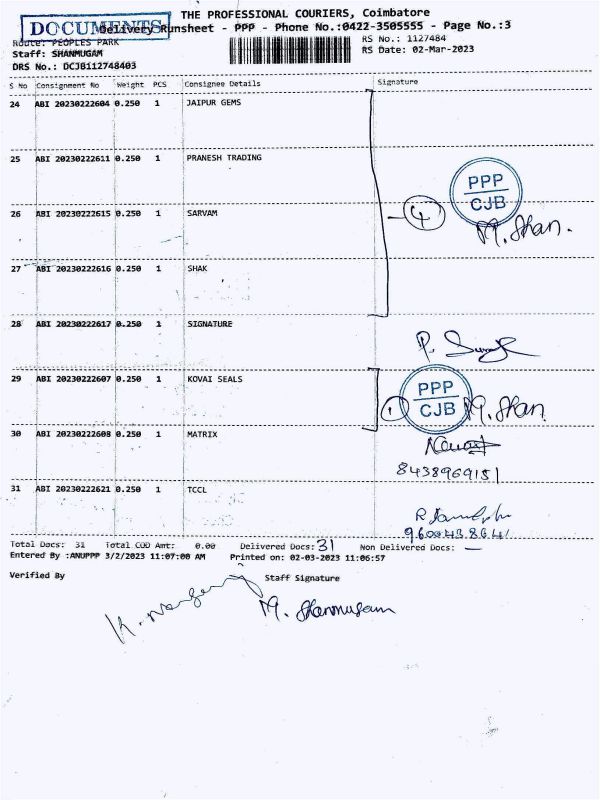 THE PROFESSIONAL COURIERS, Coimbatore
DOCUMENTS
Delivery Runsheet - PPP - Phone No.:0422-3505555 - Page No.:3
Route: PEOPLES PARK
RS No.: 1127484
Staff: SHANMUGAM
RS Date: 02-Mar-2023
DRS No.: DCJB112748403
S No Consignment No Weight PCS Consignee Details Signature
24 ABI 20230222604 0.250 1 JAIPUR GEMS
25 ABI 20230222611 0.250 1 PRANESH TRADING
PPP
CJB
26 ABI 20230222615 0.250 1 SARVAM
4
M. Shan.
27 ABI 20230222616 0.250 1 SHAK
28 ABI 20230222617 0.250 1 SIGNATURE
29 ABI 20230222607 0.250 1 KOVAI SEALS
PPP
CJB
1
M. Shan
30 ABI 20230222608 0.250 1 MATRIX
8438969151
31 ABI 20230222621 0.250 1 TCCL
Total Docs: 31 Total COD Amt: 0.00 Delivered Docs: 31 Non Delivered Docs: —
Entered By :ANUPPP 3/2/2023 11:07:00 AM Printed on: 02-03-2023 11:06:57
Verified By Staff Signature
M. Shanmugam